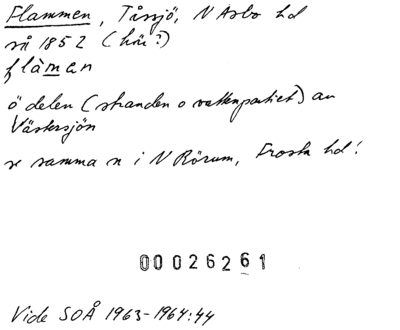 Flammen, Tåssjö, N Asbo hd
rå 1852 (här?)
flàmen
ö delen (stranden o vattenpartiet) av
Västersjön
se samma n i N Rörum, Frosta hd!
00026261
Vide SOÅ 1963-1964:44